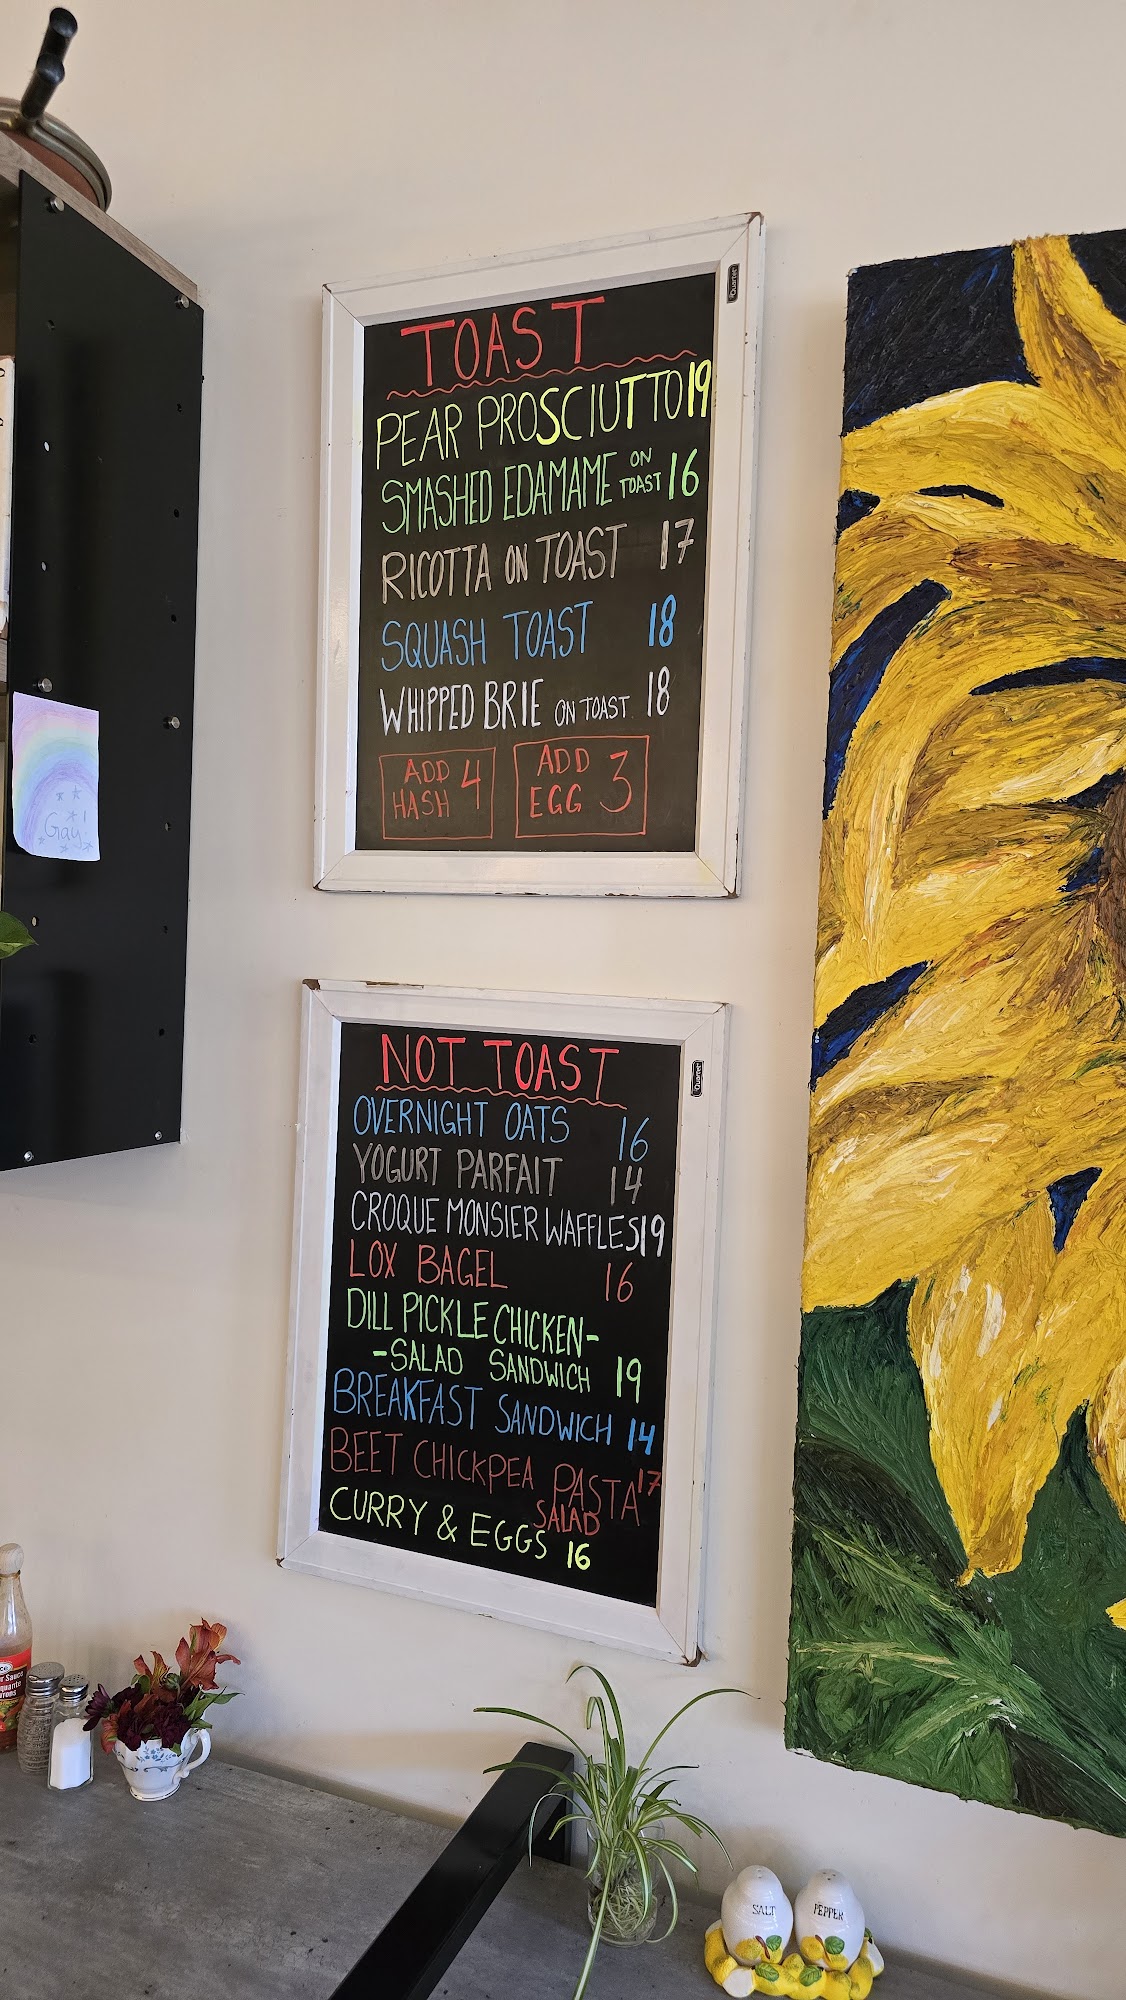 TOAST
PEAR PROSCIUTTO 19
SMASHED EDAMAME ON TOAST 16
RICOTTA ON TOAST 17
SQUASH TOAST 18
WHIPPED BRIE ON TOAST 18
ADD HASH 4
ADD EGG 3
Quartet
NOT TOAST
OVERNIGHT OATS 16
YOGURT PARFAIT 14
CROQUE MONSIER WAFFLES 19
LOX BAGEL 16
DILL PICKLE CHICKEN-
-SALAD SANDWICH 19
BREAKFAST SANDWICH 14
BEET CHICKPEA PASTA 17
SALAD
CURRY & EGGS 16
Quartet
Gay!
SALT
PEPPER